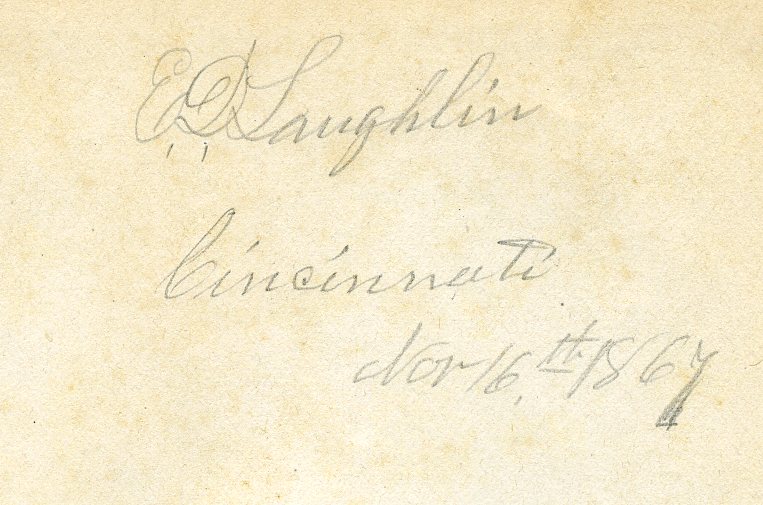 E, D, Laughlin
Cincinnati
Nov 16,th 1867